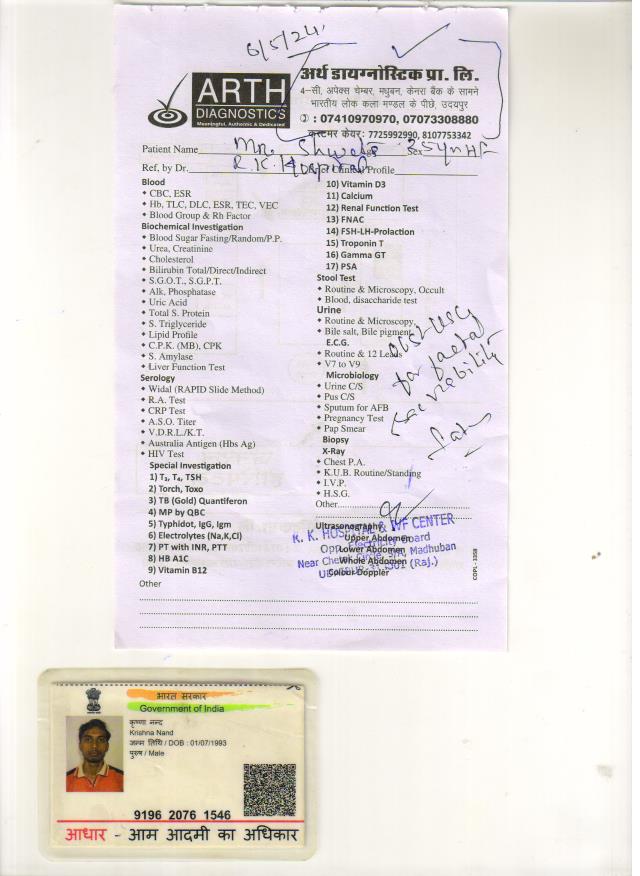 6/5/24
ARTH
DIAGNOSTICS
Meaningful, Authentic & Dedicated
अर्थ डायग्नोस्टिक प्रा. लि.
4-सी, अपेक्स चेम्बर, मधुबन, केनरा बैंक के सामने
भारतीय लोक कला मण्डल के पीछे, उदयपुर
: 07410970970, 07073308880
कस्टमर केयर: 7725992990, 8107753342
Patient Name Mr. Shweta Sex 35yr/F
Ref, by Dr. R.K. Hospital Clinical Profile
Blood
CBC, ESR
Hb, TLC, DLC, ESR, TEC, VEC
Blood Group & Rh Factor
Biochemical Investigation
Blood Sugar Fasting/Random/P.P.
Urea, Creatinine
Cholesterol
Bilirubin Total/Direct/Indirect
S.G.O.T., S.G.P.T.
Alk, Phosphatase
Uric Acid
Total S. Protein
S. Triglyceride
Lipid Profile
C.P.K. (MB), CPK
S. Amylase
Liver Function Test
Serology
Widal (RAPID Slide Method)
R.A. Test
CRP Test
A.S.O. Titer
V.D.R.L./K.T.
Australia Antigen (Hbs Ag)
HIV Test
Special Investigation
1) T₃, T₄, TSH
2) Torch, Toxo
3) TB (Gold) Quantiferon
4) MP by QBC
5) Typhidot, IgG, Igm
6) Electrolytes (Na,K,Cl)
7) PT with INR, PTT
8) HB A1C
9) Vitamin B12
Other
10) Vitamin D3
11) Calcium
12) Renal Function Test
13) FNAC
14) FSH-LH-Prolaction
15) Troponin T
16) Gamma GT
17) PSA
Stool Test
Routine & Microscopy, Occult
Blood, disaccharide test
Urine
Routine & Microscopy
Bile salt, Bile pigment
E.C.G.
Routine & 12 Leads
V7 to V9
Microbiology
Urine C/S
Pus C/S
Sputum for AFB
Pregnancy Test
Pap Smear
Biopsy
X-Ray
Chest P.A.
K.U.B. Routine/Standing
I.V.P.
H.S.G.
Other
USG
for faetal
viability
Ultrasonography
Upper Abdomen
Lower Abdomen
Whole Abdomen
Colour Doppler
R. K. HOSPITAL & IVF CENTER
Opp. Electricity Board
Near Chetak Circle, 5/A, Madhuban
(Raj.)
COPL - 3358
भारत सरकार
Government of India
कृष्णा नन्द
Krishna Nand
जन्म तिथि / DOB : 01/07/1993
पुरुष / Male
9196 2076 1546
आधार - आम आदमी का अधिकार